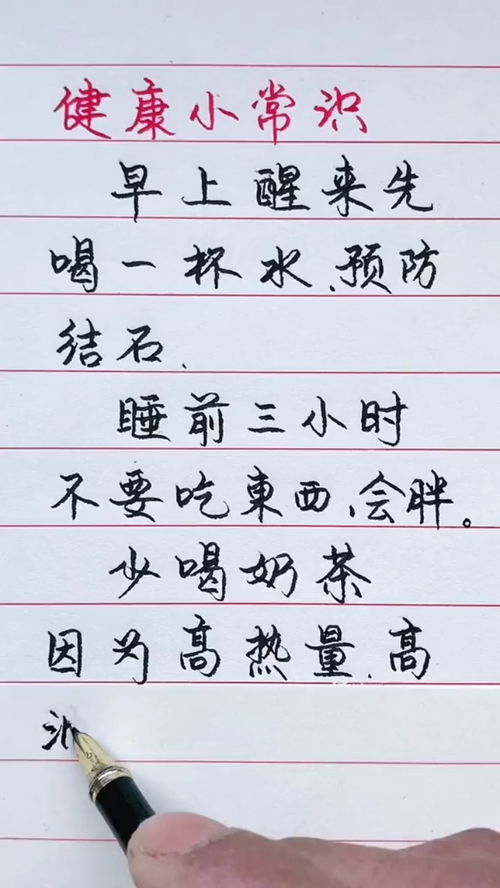 健康小常识
早上醒来先
喝一杯水、预防
结石、
睡前三小时
不要吃東西、会胖。
少喝奶茶
因为高热量、高